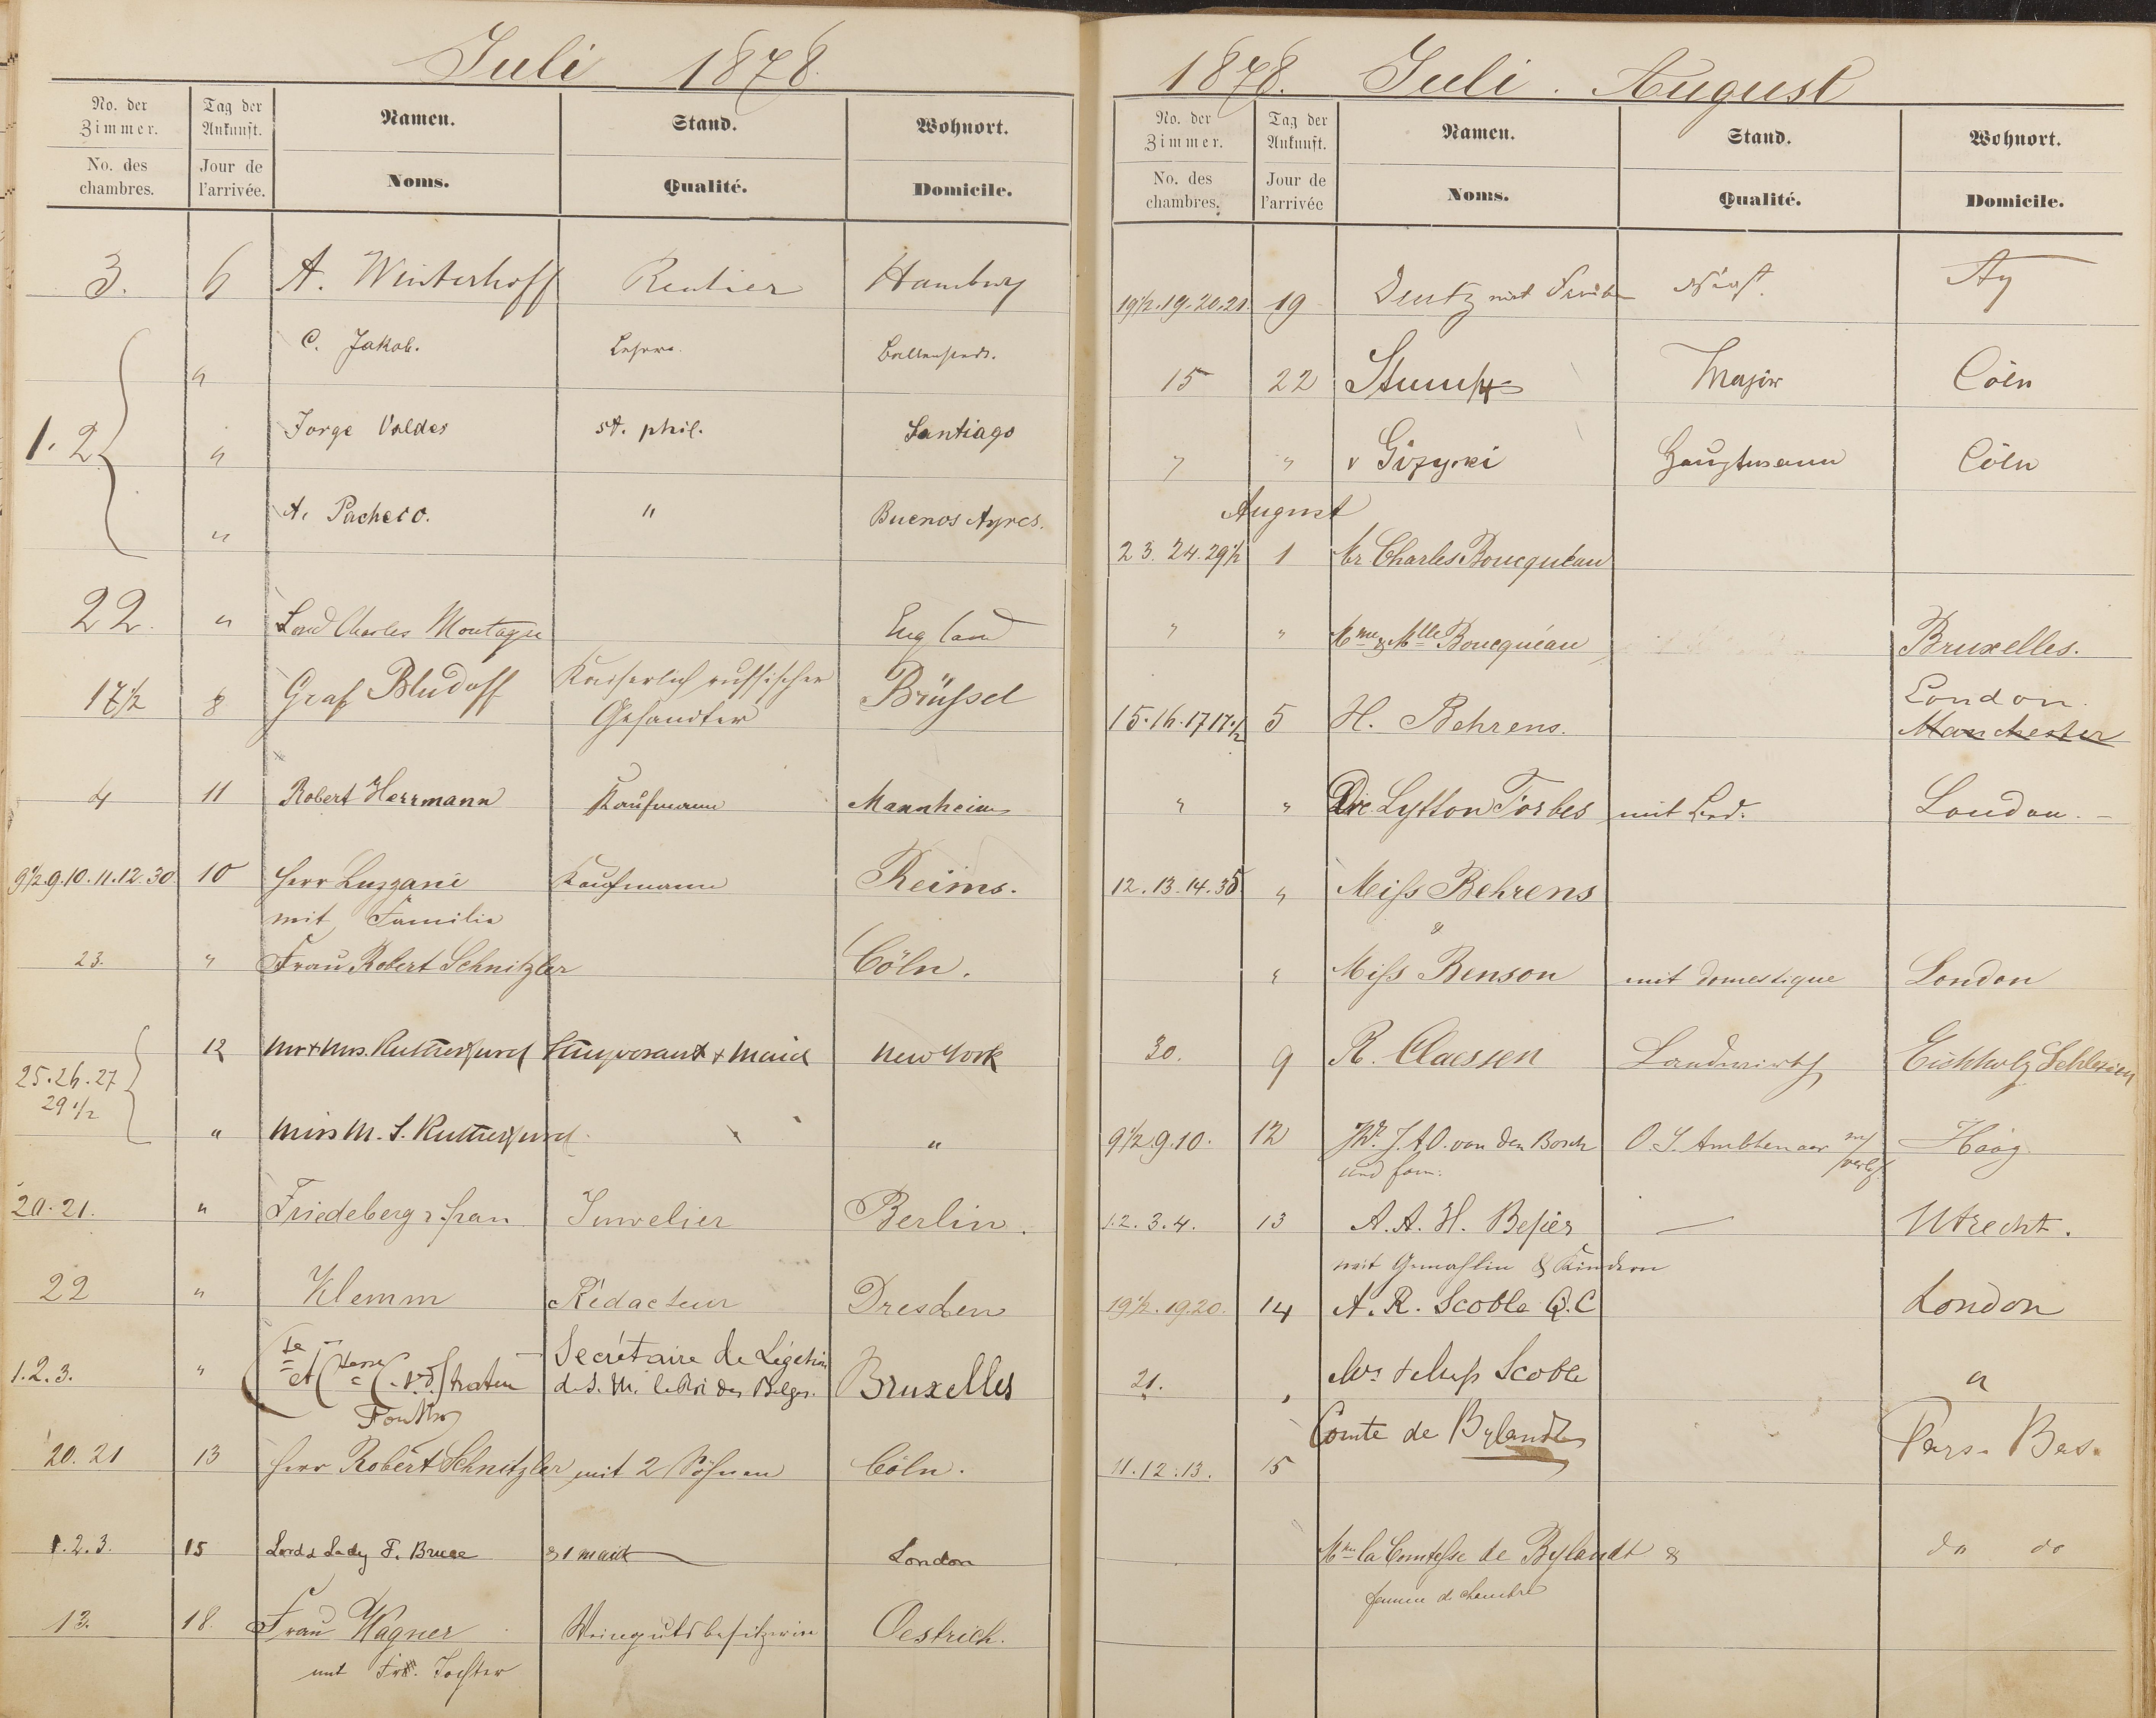 Juli 1878.
No. der Zimmer. Tag der Ankunft. Namen. Stand. Wohnort.
No. des chambres. Jour de l'arrivée. Noms. Qualité. Domicile.
3. 6 A. Winterhoff Rentier Hamburg
" C. Jakob. Lehrer. Ballenstedt.
1. 2 " Jorge Valdes st. phil. Santiago
" A. Pacheco. " Buenos Ayres.
22. " Lord Charles Montagu England
17½ 8 Graf Bludoff Kaiserlich russischer Gesandter Brüssel
4 11 Robert Herrmann Kaufmann Mannheim
9½.9.10.11.12.30 10 Herr Luzzani Kaufmann Reims.
mit Familie
23. " Frau Robert Schnitzler Cöln.
25.26.27 29½ 12 Mr & Mrs. Rutherfurd Stuyvesant & Maid New York
" Miss M. S. Rutherfurd "
20.21. " Friedeberg & Frau Juwelier Berlin.
22 " Klemm Rédacteur Dresden
1.2.3. " et Straten Secrétaire de Légation
de S. M. le Roi des Belges. Bruxelles
Ponthoz
20.21 13 Herr Robert Schnitzler mit 2 Söhnen Cöln.
1.2.3. 15 Lord & Lady F. Bruce & 1 maid London
13. 18. Frau Wagner Weingutsbesitzerin Oestrich.
mit Tochter
1878. Juli. August
No. der Zimmer. Tag der Ankunft. Namen. Stand. Wohnort.
No. des chambres. Jour de l'arrivée Noms. Qualité. Domicile.
19½.19.20.21. 19 Deutz mit Ay
15 22 Stumpf Major Cöln
" " v Gizycki Hauptmann Cöln
August
23.24.29½ 1 Mr Charles Boucquéau
" " Mme & Mlle Boucquéau Bruxelles.
London.
15.16.17 17½ 5 H. Behrens. Manchester
" " Dr Lytton Forbes mit Bed. London.
12.13.14.35 " Miss Behrens
&
" Miss Benson mit domestique London
30. 9 R. Claessen Landwirth Eichholz Schlesien
9½.9.10. 12 Jhr. J. A. O. van den Bosch O. I. Ambtenaar Haag
und fam.
1.2.3.4. 13 A. A. H. Besier — Utrecht.
mit Gemahlin & Kindern
19½.19.20. 14 A. R. Scoble Q.C London
21. " Mrs & Miss Scoble "
11.12.13. 15 Comte de Bylandt Pays-Bas.
Mme la Comtesse de Bylandt & do do
femme de chambre